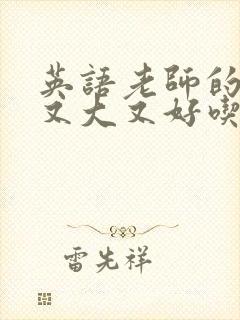 英語老師的
又大又好喫
雷先祥